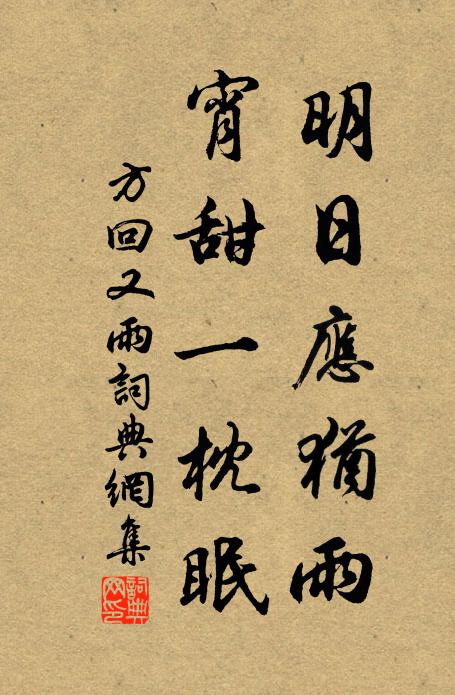 明日應猶雨
宵甜一枕眠
方回又雨詞典網集
詞典網印